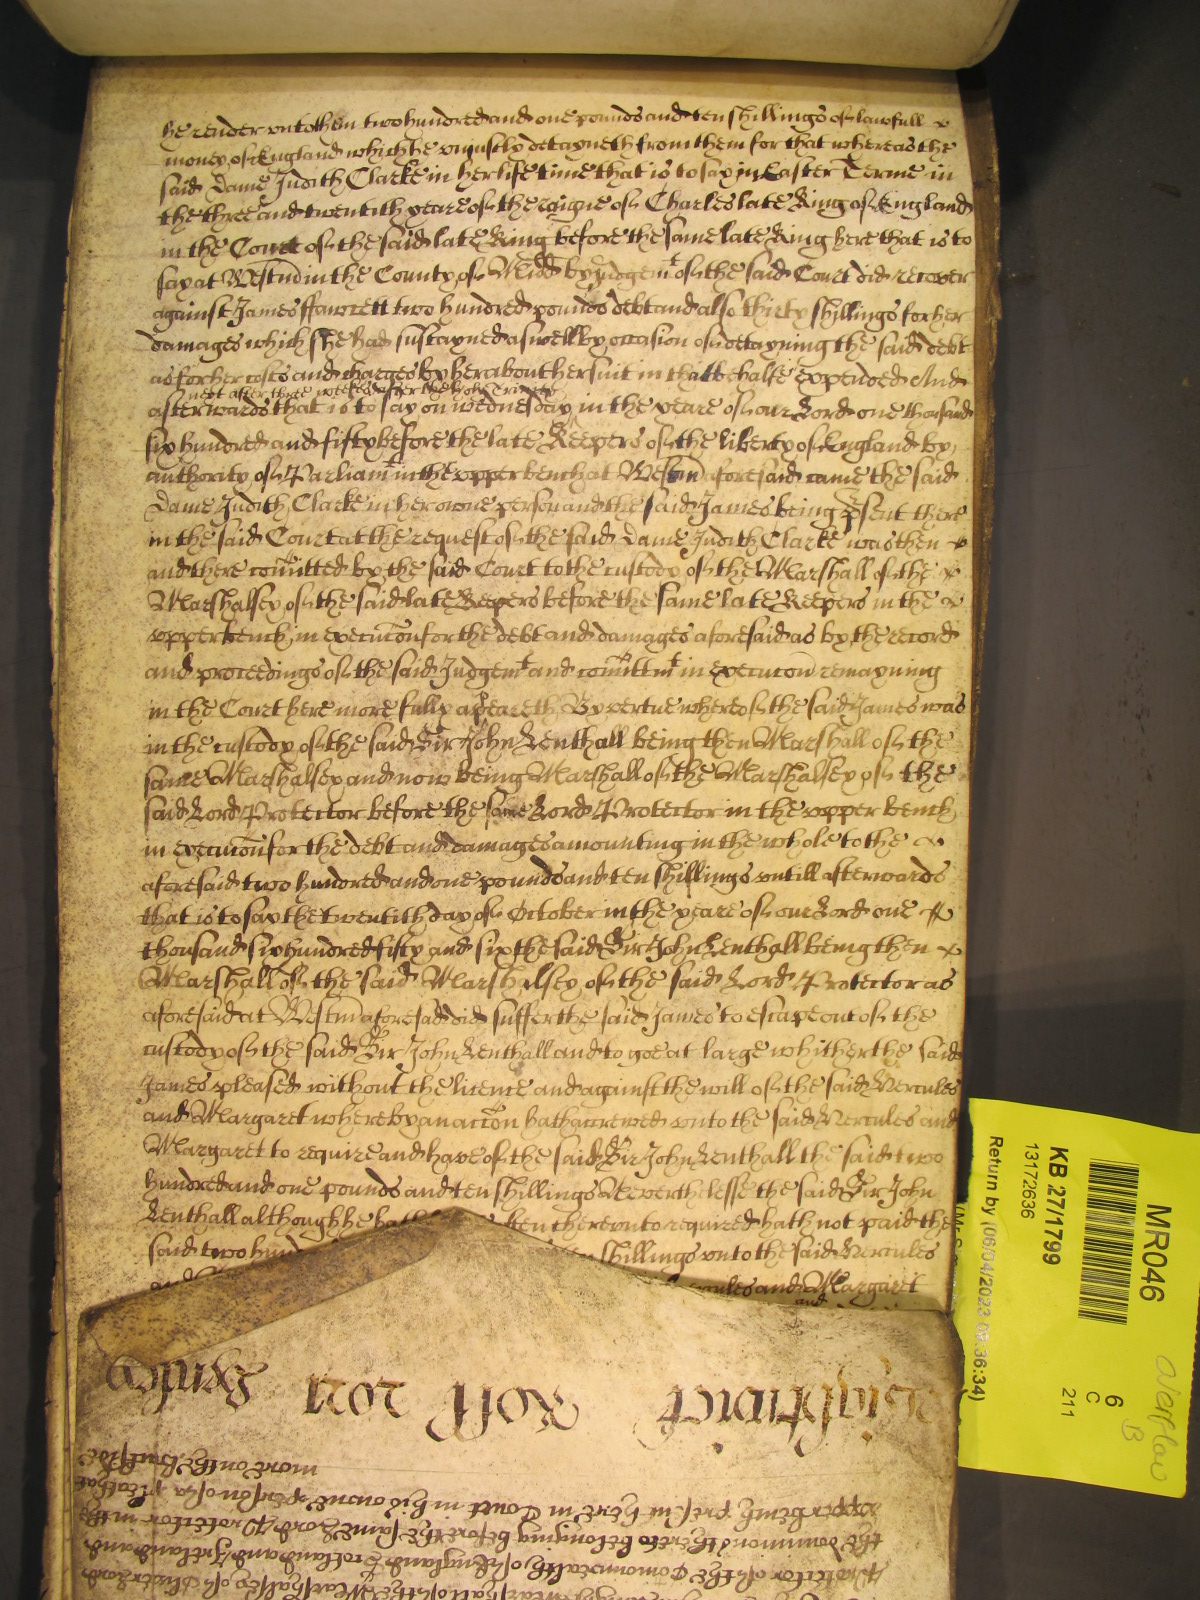 he render unto them two hundred and one pounds and ten shillings of lawfull
money of England which he uniustly detayneth from them for that whereas the
said Dame Judith Clarke in her life time that is to say in Easter Terme in
the three and twentith yeare of the raigne of Charles late King of England
in the Court of the said late King before the same late King here that is to
say at Westm in the County of Midd by Judgemt of the said Court did recover
against James ffawcett two hundred pounds debt and also thirty shillings for her
damages which she had sustayned aswell by occasion of detayning the said debt
as for her costs and charges by her about her suit in that behalfe expended And
next after three weekes after the holy Trinity
afterwards that is to say on wednesday in the yeare of our Lord one thousand
six hundred and fifty before the late Keepers of the liberty of England by
authority of Parliamt in the upper bench at Westm aforesaid came the said
Dame Judith Clarke in her owne person and the said James being psent there
in the said Court at the request of the said Dame Judith Clarke was then
and there comitted by the said Court to the custody of the Marshall of the
Marshalsey of the said late Keepers before the same late Keepers in the
upper bench in execucon for the debt and damages aforesaid as by the record
and proceedings of the said Judgemt and comittmt in execucon remayning
in the Court here more fully appeareth By vertue whereof the said James was
in the custody of the said Sir John Lenthall being then Marshall of the
same Marshalsey and now being Marshall of the Marshalsey of the
said Lord Protector before the same Lord Protector in the upper bench
in execucon for the debt and damages amounting in the whole to the
aforesaid two hundred and one pounds and ten shillings untill afterwards
that is to say the twentith day of October in the yeare of our Lord one
thousand six hundred fifty and six the said Sir John Lenthall being then
Marshall of the said Marshalsey of the said Lord Protector as
aforesaid at Westm aforesaid did suffer the said James to escape out of the
custody of the said Sir John Lenthall and to goe at large whither the said
James pleased without the licence and against the will of the said Hercules
and Margaret whereby an accon hath accrewed unto the said Hercules and
Margaret to require and have of the said Sir John Lenthall the said two
hundred and one pounds and ten shillings Neverthelesse the said Sir John
Lenthall although he hath ten thereunto required hath not paid the
said two hund shillings unto the said Hercules
and cules and Margaret
and
Roll
more on the
appr being present here in Court in his owne person of a plea that
the dominions thereto belonging before the same Lord Protector in the
Protector of the Comonwealth of England Scotland and Ireland and
Marshall of the Marshalsey of
MR046
KB 27/1799
13172636
Return by (06/04/2023 09:36:34)
6
C
211
Overflow
B